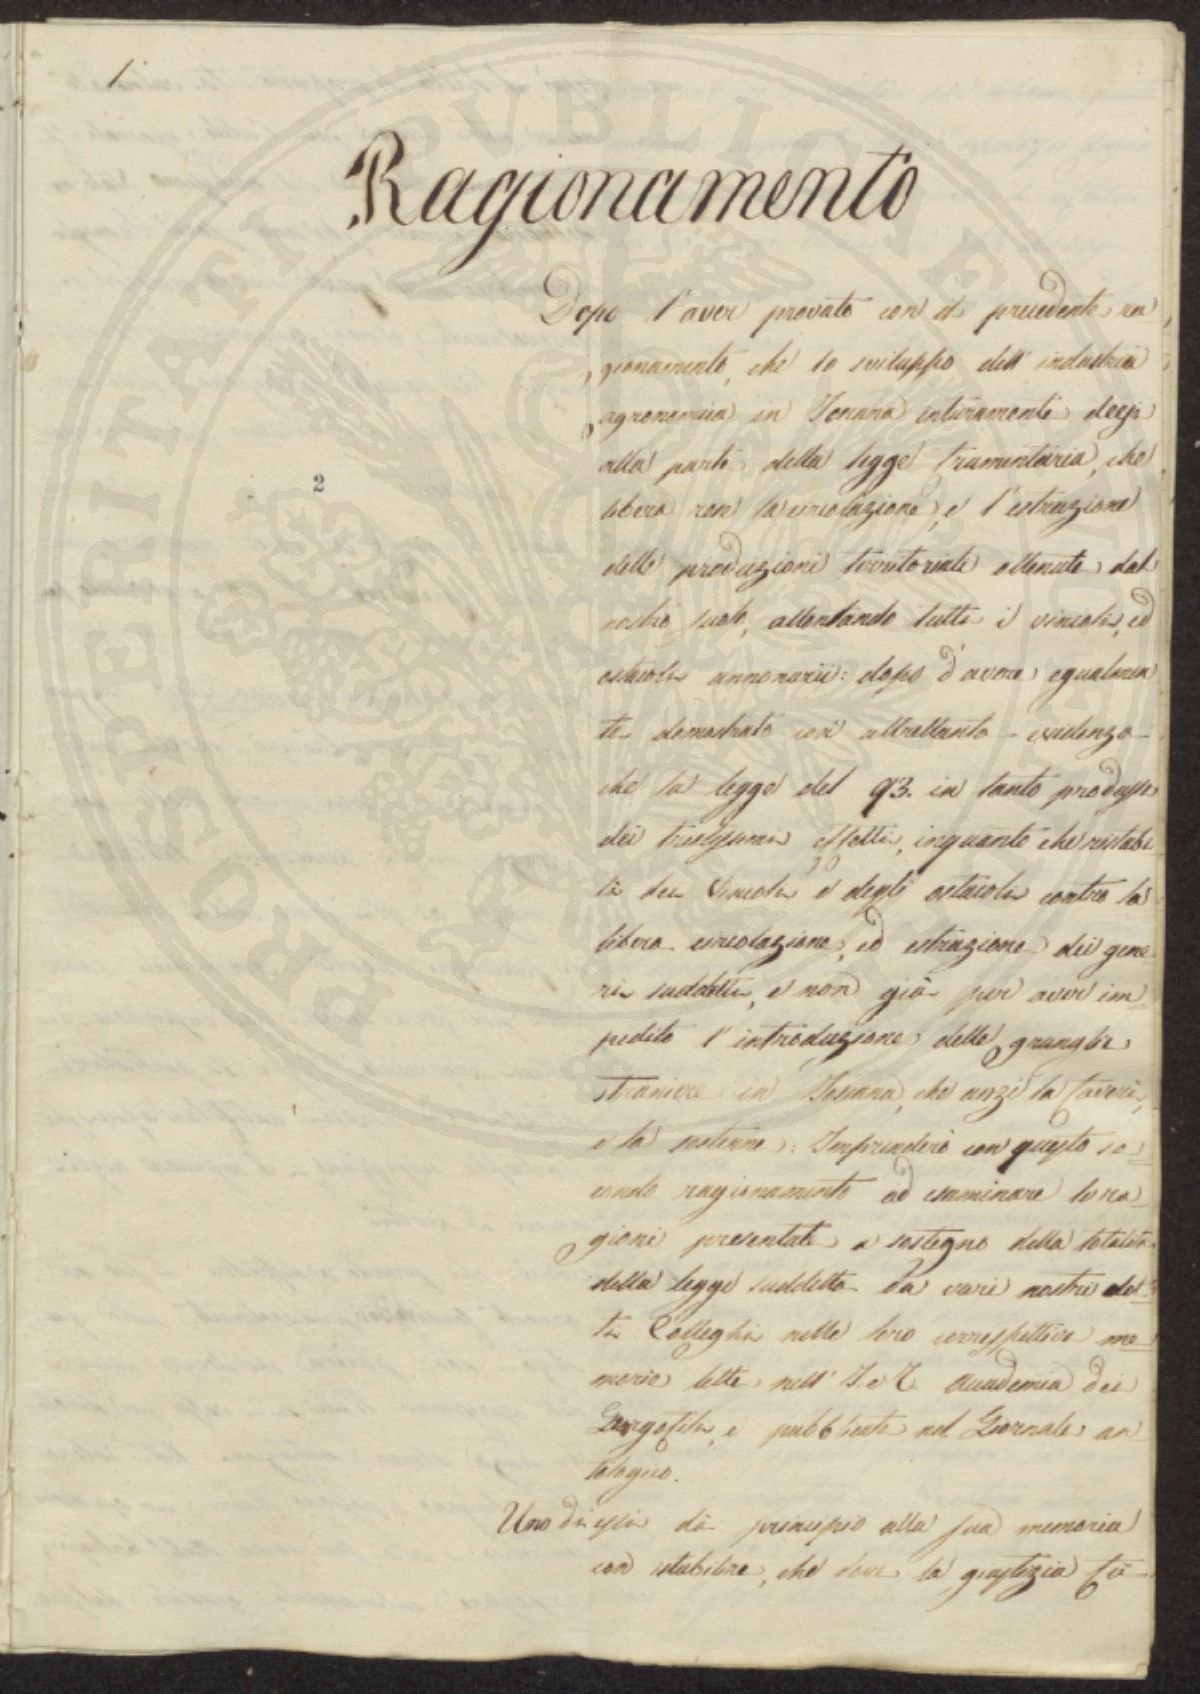 1.
Ragionamento
Dopo l'aver provato con il precedente ra
gionamento, che lo sviluppo dell' industria
agronomica in Toscana interamente deesi
alla parte della legge frumentaria, che
libera rese la circolazione, e l'estrazione
delle produzioni territoriali ottenute dal
nostro suolo, allentando tutti i vincoli, ed
ostacoli annonarii: dopo d'avere egualmen
te dimostrato con altrettanta evidenza
che la legge del 93. in tanto produsse
dei tristissimi effetti, inquanto che ristabi
lì dei vincoli e degli ostacoli contro la
libera circolazione, ed estrazione dei gene
ri suddetti, e non già per aver im
pedito l'introduzione delle granaglie
straniere in Toscana, che anzi la favorì,
e la sostenne: Imprenderò con questo se
condo ragionamento ad esaminare le ra
gioni presentate a sostegno della totalità
della legge suddetta da varii nostri dot
ti Colleghi nelle loro corrispettive me
morie lette nell' I. e R. Accademia dei
Georgofili, e pubblicate nel Giornale an
tologico.
Uno di essi dà principio alla sua memoria
con stabilire, che dove la giustizia fu
2
PROSPERITATI PUBLICAE